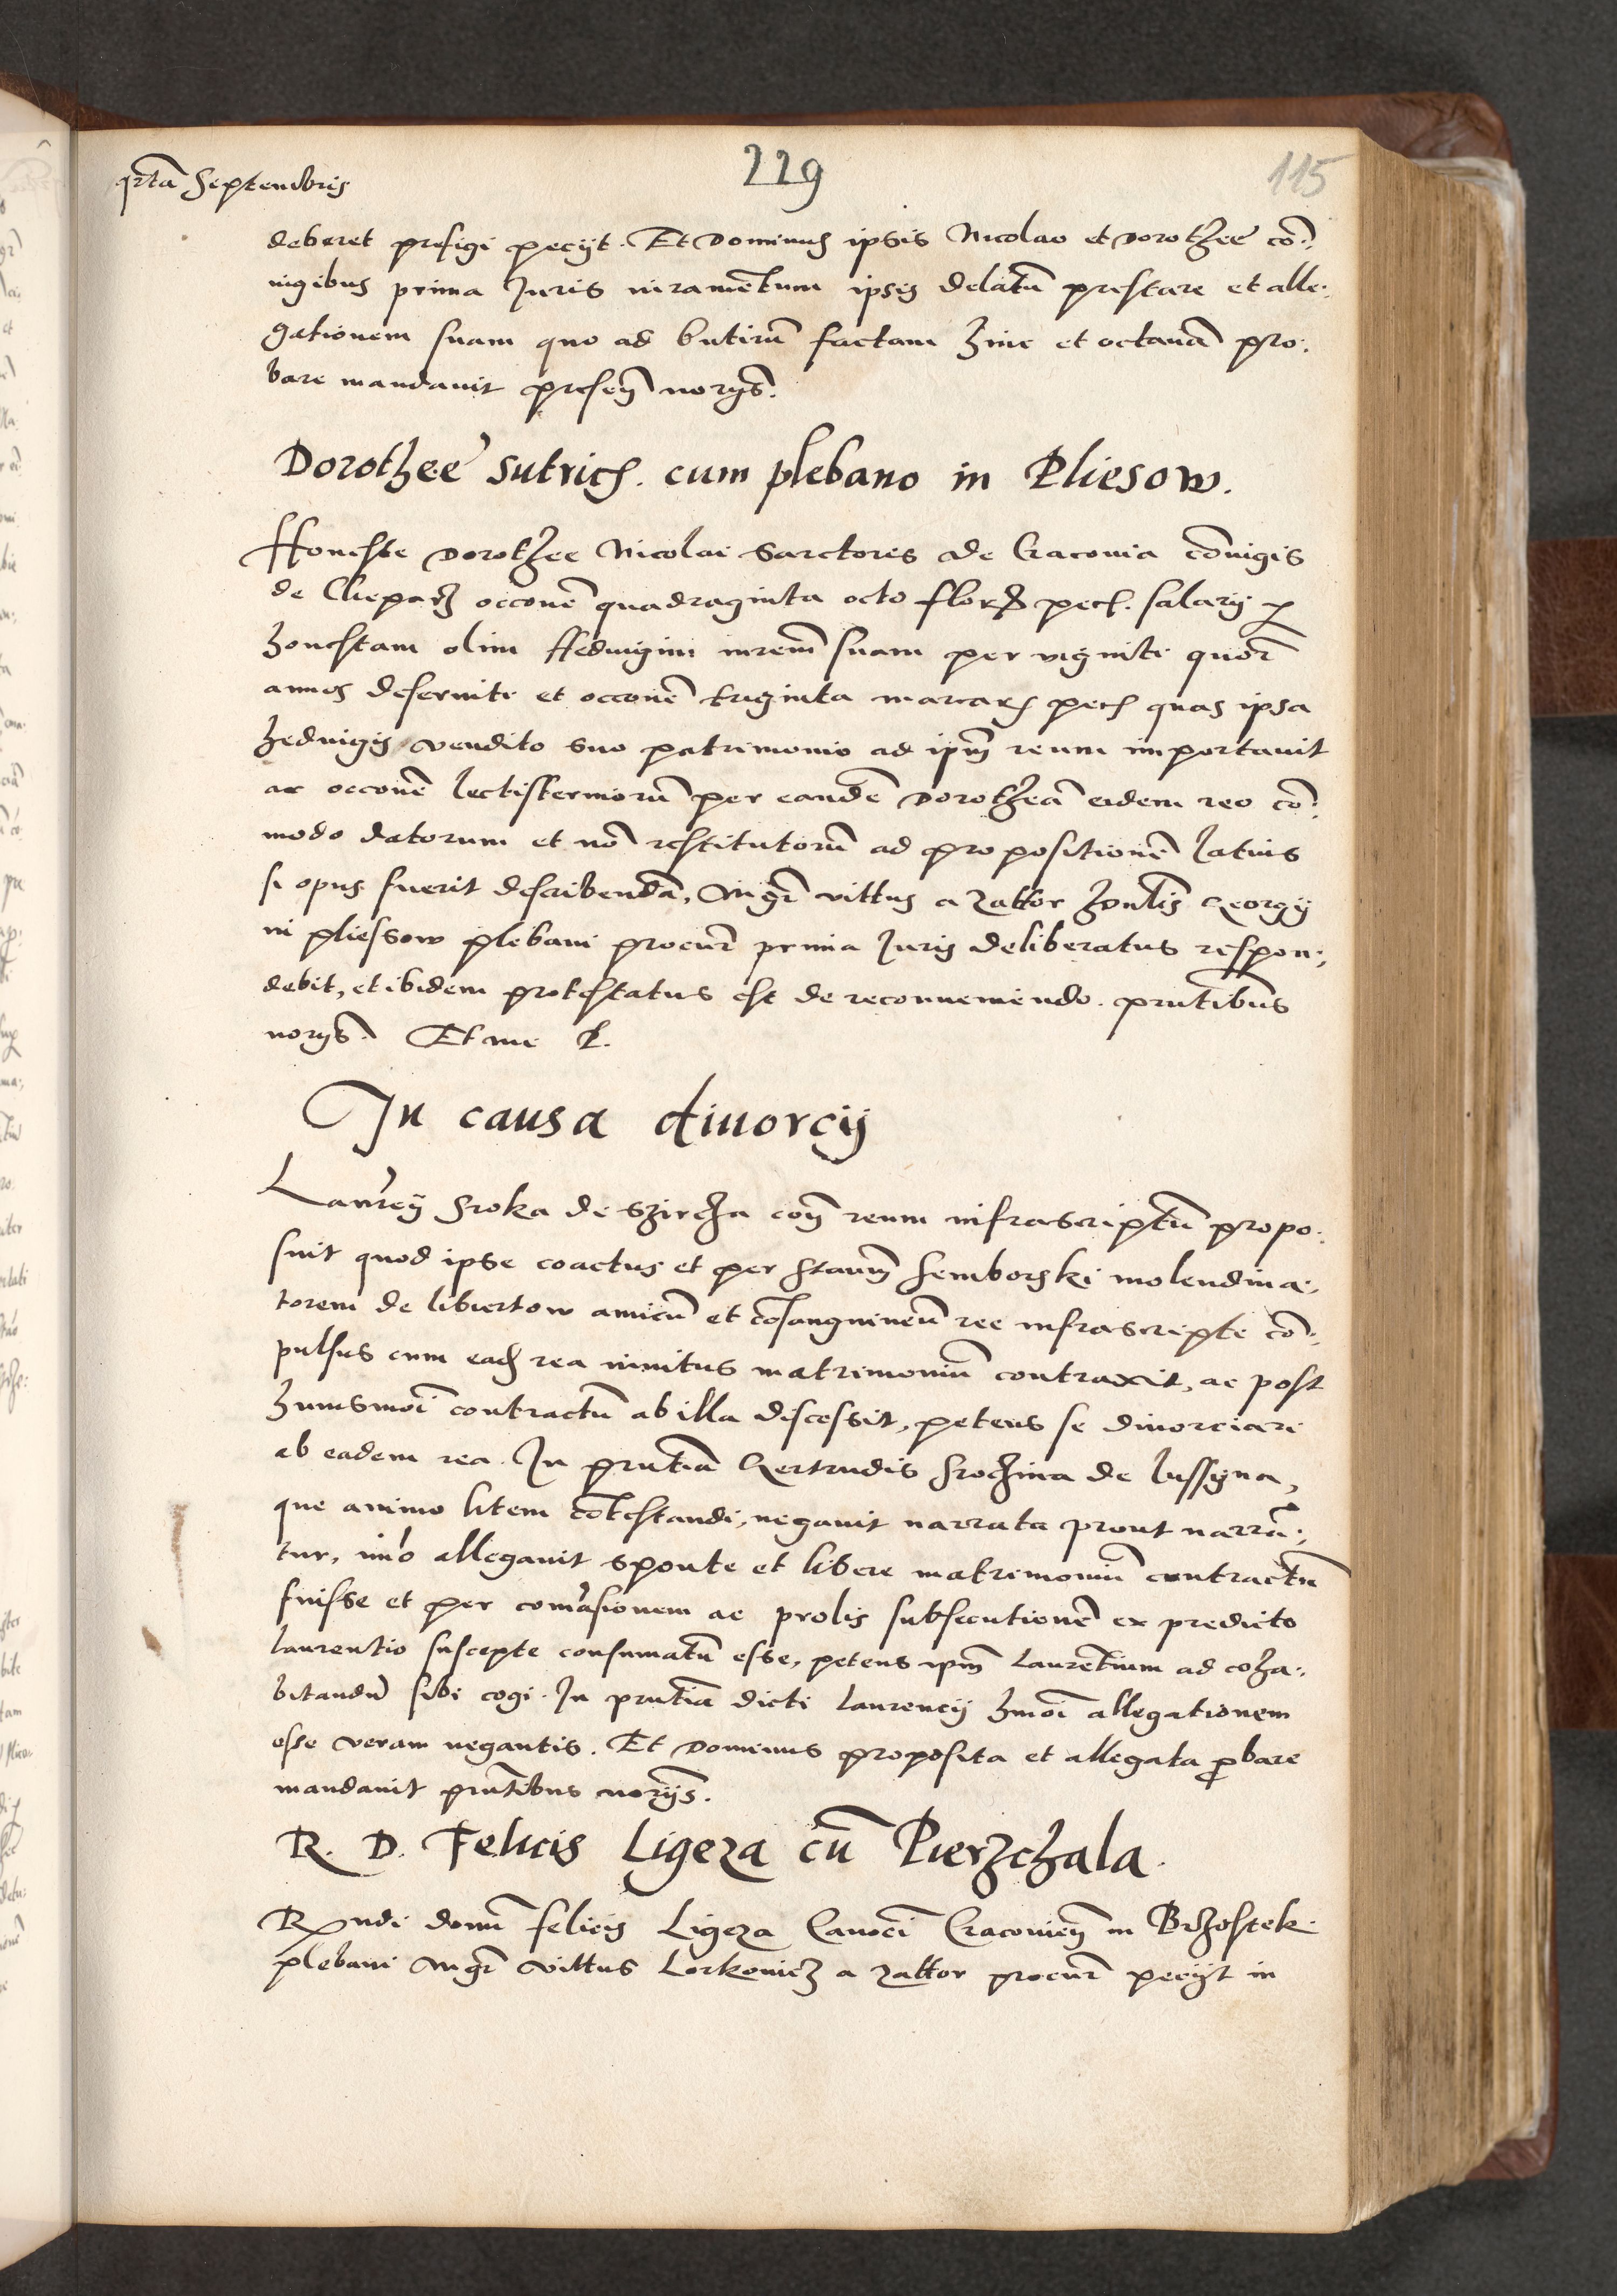 qrtā Septembris
229
115
deberet prefigi peciit. Et Dominus ipsis Nicolao et Dorothee cō:
iugibus prima Juris iuramentum ipsis delatū prestare et alle:
gationem suam quo ad butirū factam hinc et octauā pro:
bare mandauit presen̄ norijs̄.
Dorothee sutrich. cum plebano in Pliesow.
Honeste Dorothee Nicolai Sartoris de Cracouia cōiugis
de Cliepars occonē quadraginta octo flor pech. salarij
honestam olim Heduigim suam per viginti quor̄
annos deseruiti et occonē triginta marcar pech quas ipsa
heduigis vendito suo patrimonio ad ipm̄ reum importauit
ac occonē lectisterniorū per eandē Dorotheā eidem reo cō:
modo datorum et nō restitutorū ad propositionē latius
si opus fuerit describendā, Mgr̄ vittus a zattor hon̄lis Georgij
in pliessow plebani procur̄ prima Juris deliberatus respon:
debit, et ibidem protestatus est de reconueniendo. pn̄tibus
norijs̄. Et me P.
In causa diuorcij
Laur̄cij Sroka de Szircza con̄ reum infrascriptū propo:
suit quod ipse coactus et per Stanm̄ Semborski molendina:
torem de libiertow amicū et cōsanguineū ree infrascripte cō:
pulsus cum ead rea inuitus matrimoniū contraxit, ac post
huiusmōi contractū ab illa discessit, petens se diuorciari
ab eadem rea. In pn̄tia Gertrudis Sroczina de lussyna,
que animo litem cōtestandi, negauit narrata prout narrā:
tur, imo allegauit sponte et libere matrimoniū contractū
fuisse et per com̄asionem ac prolis subsecutionē ex predicto
laurentio suscepte consumatū esse, petens ipm̄ Laurētium ad coha:
bitandū sibi cogi. In pn̄tia dicti laurencij hmōi allegationem
esse veram negantis. Et Dominus proposita et allegata probare
mandauit pn̄tibus norijs̄.
R. D. Felicis Ligeza cū Pierzchala.
Rndi domī felicis Ligeza Canoci Cracouien̄ in Brzostek
plebani Mgr̄ vittus Lorkouicz a zattor procur̄ peciit in